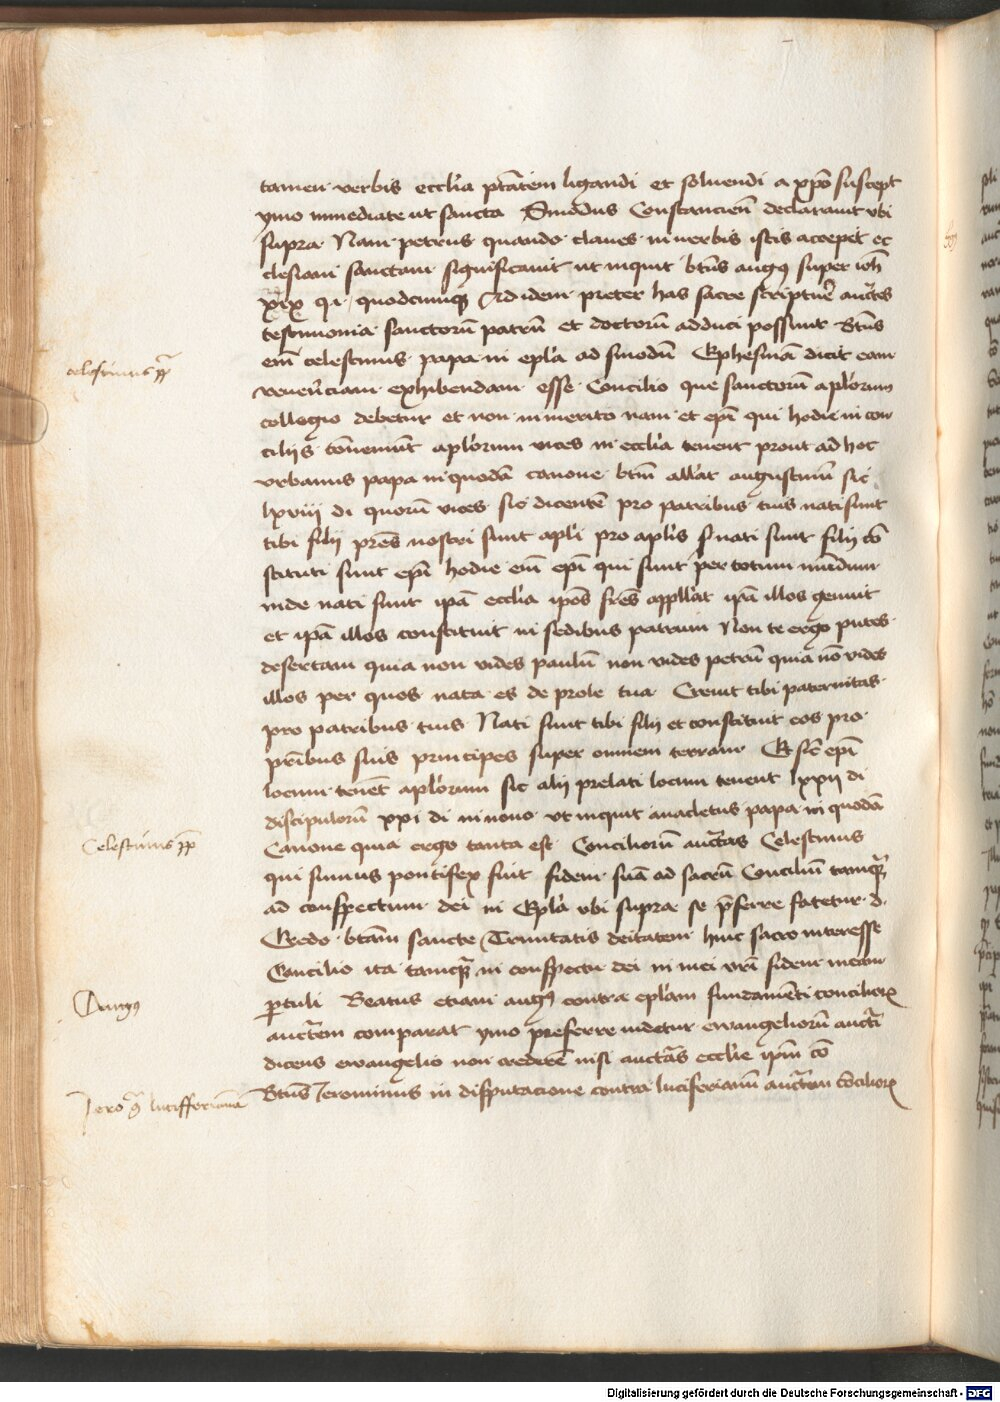 tamen verbis ecclia ptatem ligandi et soluendi a xpo suscept
ymo inmediate ut sancta Sinodus Constancien declarauit vbi
supra Nam petrus quando claues in verbis istis accepit ec
clesiam sanctam significauit ut inquit btus augus super ioh
quodcumqs Ad idem preter has sacre scripture auctes
testimonia sanctorum patrum et doctorum adduci possunt Btus
em celestinus papa in epla ad sinodum Ephesinam dicit eam
venerciam exhibendam esse Concilio que sanctorum aplorum
collegio debetur et non inmerito nam et epi qui hodie in con
cilijs conueniunt aplorum vices in ecclia tenent prout ad hoc
vrbanus papa in quodam canone btm allat augustinum sic
lxviii di quorum vices sic dicentem pro patribus tuis nati sunt
tibi filij pres nostri sunt apli pro aplis nati sunt filij con
stituti sunt epi hodie em epi qui sunt per totum mundum
inde nati sunt ipa ecclia ipos fres appllat ipa illos genuit
et ipa illos constituit in sedibus patrum Non te ergo putes
desertam quia non vides paulum non vides petrum quia non vides
illos per quos nata es de prole tua Creuit tibi paternitas
pro patribus tuis Nati sunt tibi filij et constituit eos pro
pribus suis principes super omnem terram Et sic epi
locum tenent aplorum sic alij prelati locum tenent lxxij di
discipulorum xxi di in nouo ut inquit anacletus papa in quodam
Canone quia ergo tanta est Conciliorum auctas Celestinus
qui sumus pontifex fuit fidem suam ad sacrum Concilium tamquam
ad conspectum dei in Epla vbi supra se preferre fatetur d.
Credo btam sancte Trinitatis deitatem huic sacro interesse
Concilio ita tamquam in conspectu dei in mei vri fidem meam
pertuli Beatus etiam augus contra eplam fundamenti conciliorum
auctem comparat ymo preferre videtur ewangeliorum aucti
dicens ewangelio non crederem nisi auctas ecclie
Btus Jeronimus in disputacione contra luciferianum auctem conciliorum
celestinus pp
Celestinus pp
Augus
Jero luciferianum
Digitalisierung gefördert durch die Deutsche Forschungsgemeinschaft - DFG